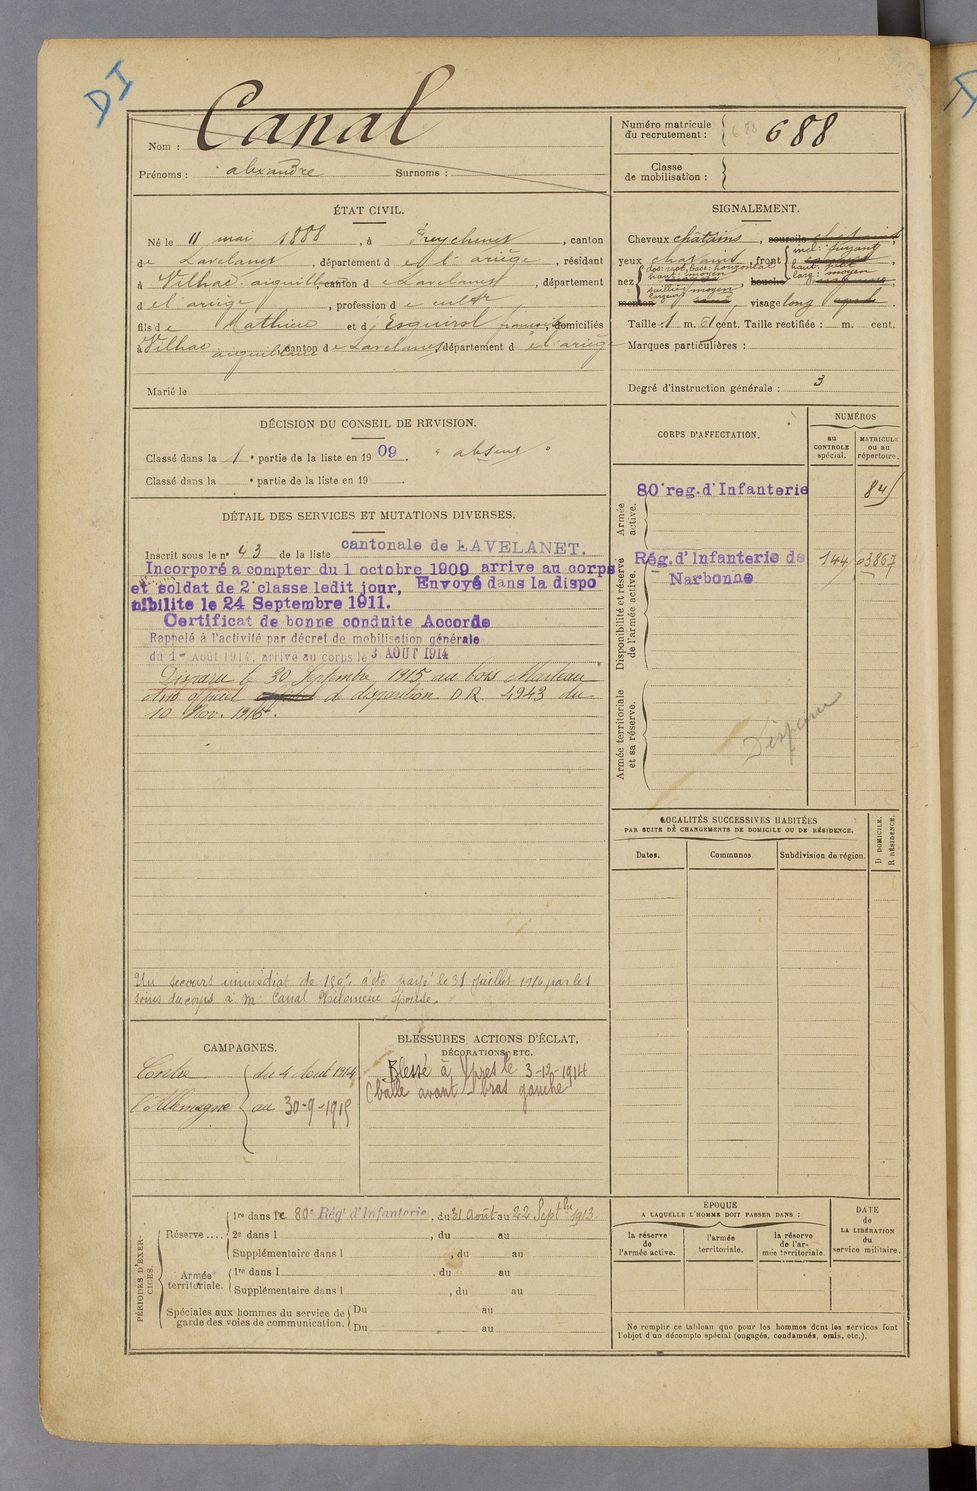 DI
Nom : Canal
Prénoms : alexandre Surnoms :
Numéro matricule du recrutement : 688
Classe de mobilisation :
ÉTAT CIVIL.
Né le 11 mai 1888, à Freychenet, canton
de Lavelanet, département de l'ariège, résidant
à Vilhac aiguillane, canton de Lavelanet, département
de l'ariège, profession de cultr
fils de Mathieu et d'Esquirol françoise, domiciliés
à Vilhac aiguillane canton de Lavelanet département de l'ariège
Marié le
SIGNALEMENT.
Cheveux châtains, sourcils
yeux chatains, front incl: fuyant
haut: petit
larg: moyen
nez dos: rect, base: horizontal
haut: moyen
saillie moyen
largeur
bouche
menton visage long
Taille : 1 m. 61 cent. Taille rectifiée : m. cent.
Marques particulières :
Degré d'instruction générale : 3
DÉCISION DU CONSEIL DE REVISION.
Classé dans la 1 e partie de la liste en 1909. " absent "
Classé dans la e partie de la liste en 19 .
DÉTAIL DES SERVICES ET MUTATIONS DIVERSES.
Inscrit sous le no 43 de la liste cantonale de LAVELANET.
Incorporé a compter du 1 octobre 1909 arrive au corps
et soldat de 2e classe ledit jour, Envoyé dans la dispo
nibilite le 24 Septembre 1911.
Certificat de bonne conduite Accorde
Rappelé à l'activité par décret de mobilisation générale
du 1er Août 1914, arrivé au corps le 3 AOUT 1914
Disparu le 30 Septembre 1915 au bois Marteau
avis officiel de disparition DR 4943 du
10 Nov. 1915.
Un secours immédiat de 150f a été payé le 31 juillet 1916 par les
soins du corps à Me Canal Philomène épouse.
CORPS D'AFFECTATION.
NUMÉROS
au CONTROLE spécial.
MATRICULE ou au répertoire.
Armée active.
80e reg. d'Infanterie
Disponibilité et réserve de l'armée active.
Rég. d'Infanterie de Narbonne 144 03867
Armée territoriale et sa réserve.
Disparu
LOCALITÉS SUCCESSIVES HABITÉES
PAR SUITE DE CHANGEMENTS DE DOMICILE OU DE RÉSIDENCE.
Dates. Communes Subdivision de région.
D DOMICILE.
R RÉSIDENCE.
CAMPAGNES.
Contre du 4 Aout 1914
l'Allemagne au 30-9-1915
BLESSURES, ACTIONS D'ÉCLAT,
DÉCORATIONS, ETC.
Blessé à Ypres le 3-12-1914
(balle avant bras gauche
PÉRIODES D'EXERCICES.
Réserve ....
1re dans le 80e Régt d'Infanterie, du 31 Août au 22 Septbre 1913.
2e dans l , du au
Supplémentaire dans l , du au
Armée territoriale.
1re dans l . du au
Supplémentaire dans l , du au
Spéciales aux hommes du service de garde des voies de communication.
Du au
Du au
EPOQUE
A LAQUELLE L'HOMME DOIT PASSER DANS :
la réserve de l'armée active.
l'armée territoriale.
la réserve de l'armée territoriale.
DATE de LA LIBÉRATION du service militaire.
Ne remplir ce tableau que pour les hommes dont les services font
l'objet d'un décompte spécial (engagés, condamnés, omis, etc.).